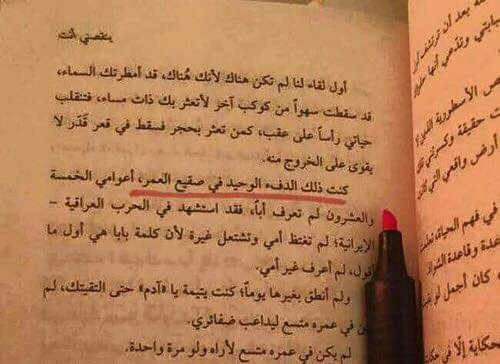 ينقصني أنت
أول لقاء لنا لم تكن هناك لأنك هُناك، قد أمطرتك السماء،
قد سقطت سهواً من كوكب آخر لأتعثر بك ذات مساء، فتنقلب
حياتي رأساً على عقب، كمن تعثر بحجر فسقط في قعر قَدَر لا
يقوى على الخروج منه.
كنت ذلك الدفء الوحيد في صقيع العمر، أعوامي الخمسة
والعشرون لم تعرف أباً، فقد استشهد في الحرب العراقية –
الإيرانية؛ لم تغتظ أمي وتشتعل غيرة لأن كلمة بابا هي أول ما
أقول، لم أعرف غير أمي.
ولم أنطق بغيرها يوماً؛ كنت يتيمة يا «آدم» حتى التقيتك، لم
في عمره متسع ليداعب ضفائري.
لم يكن في عمره متسع لأراه ولو مرة واحدة.
بعد أن ترتشف
وتدعي أنها
ص الأسطورية اللذين
ت حقيقة وكسرتني
أرض واقعي التي
في فهم الحياة،
وحدة وقاعدة
كان أجمل
الحكاية إلّا في